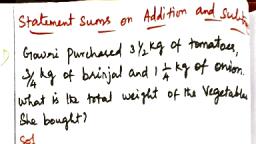 Statement Sums on Addition and Subt
Gowri Purchased 3 1/2 kg of tomatoes,
3/4 kg of brinjal and 1 1/4 kg of onion.
What is the total weight of the Vegetables
She bought?
Sol